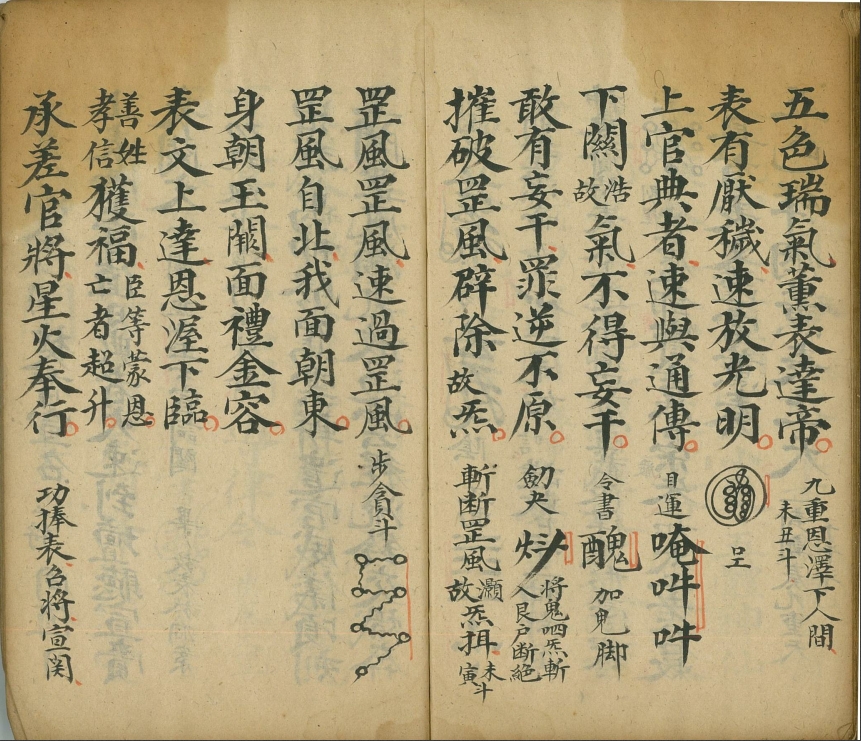 五色瑞氣薰表達帝 九重恩澤下人間 未丑斗
表有厭穢速放光明
上官典者速與通傳 目運 唵吽吽
下關浩故氣不得妄干 令書 魗 加鬼脚
敢有妄干罪逆不原 劒火 将鬼呬炁斬入艮户断絕
摧破罡風辟除故炁 斬断罡風 灝故炁揖 未斗寅
罡風罡風速過罡風 步貪斗
罡風自北我面朝東
身朝玉闕面禮金容
表文上達恩渥下臨
善姓孝信獲福亡者超升臣等蒙恩
承差官將星火奉行 功捧表召将宣関